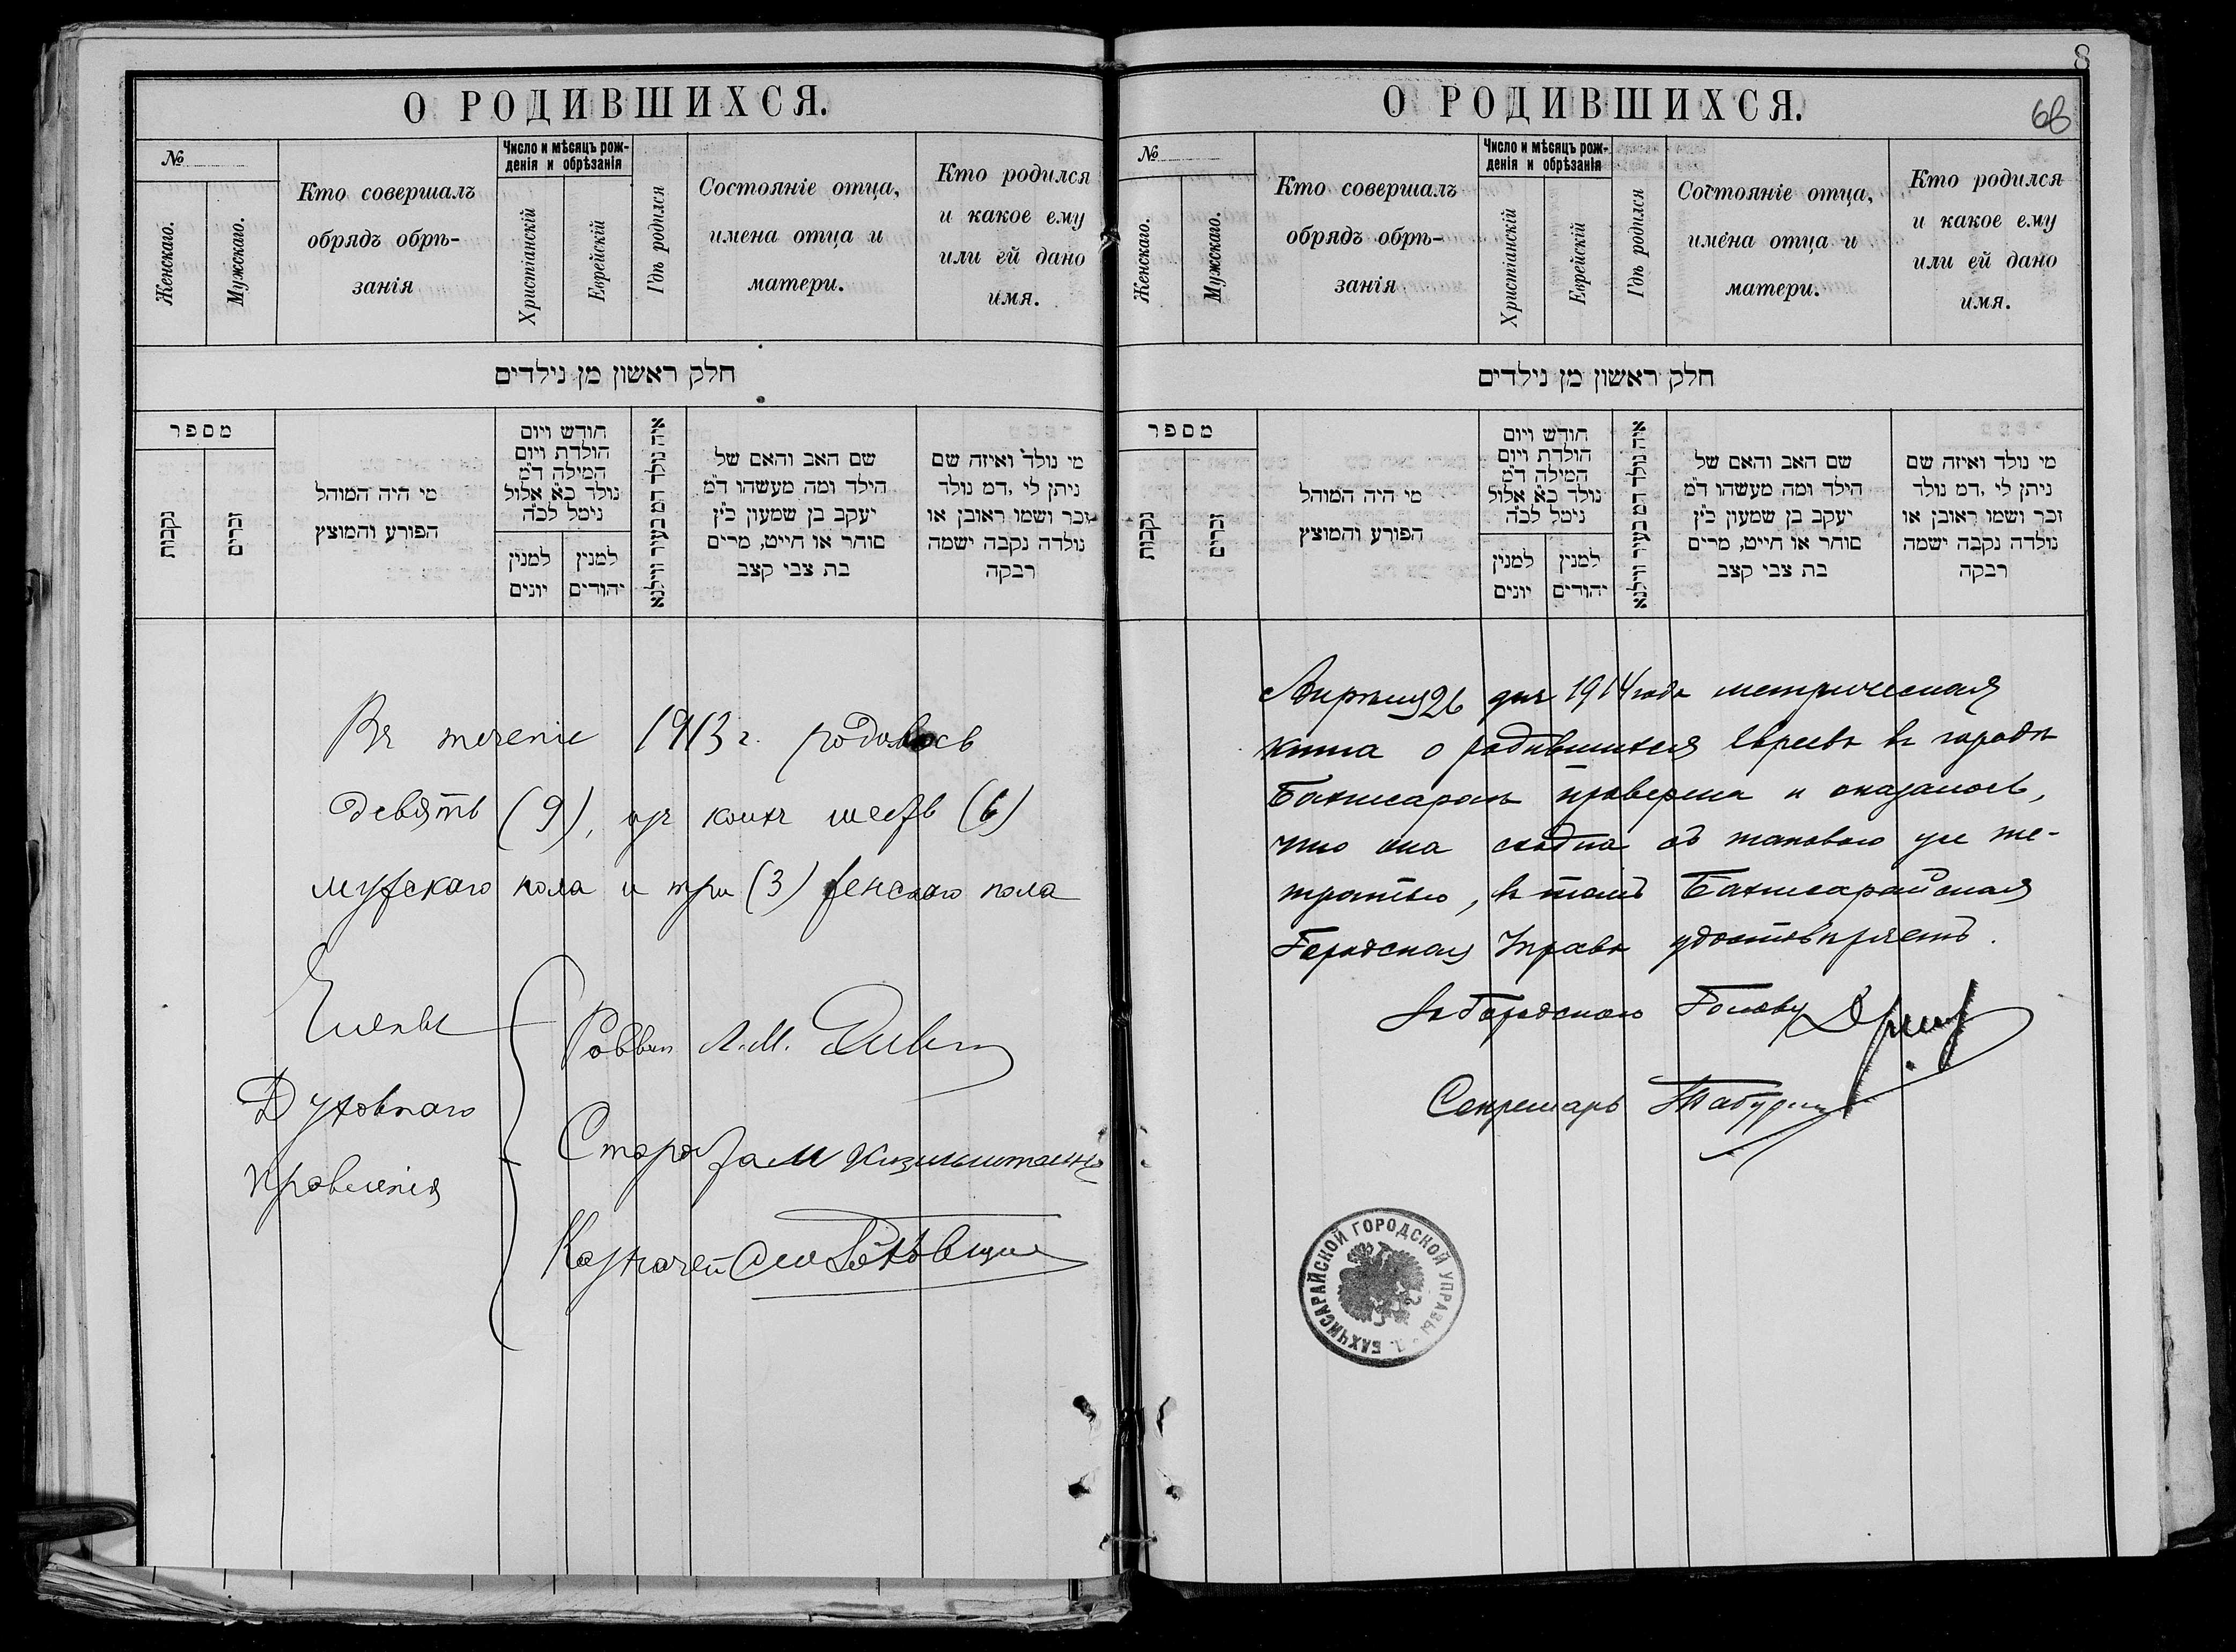 О РОДИВШИХСЯ.
№
Женскаго.
Мужскаго.
Кто совершалъ
обрядъ обрѣ-
занія
Число и мѣсяцъ рож-
денія и обрѣзанія
Христіанскій
Еврейскій
Гдѣ родился
Состояніе отца,
имена отца и
матери.
Кто родился
и какое ему
или ей дано
имя.
חלק ראשון מן נילדים
מספר
נקבות
זכרים
מי היה המוהל
הפורע והמוצץ
חודש ויום
הולדת ויום
המילה ד״מ
נולד כ״א אלול
נימל לכ״ה
למנין
יונים
למנין
יהודים
איה נולד דמ בעיר ווילנא
שם האב והאם של
הילד ומה מעשהו ד״מ
יעקב בן שמעון כ״ץ
סוחר או חייט, מרים
בת צבי קצב
מי נולד ואיזה שם
ניתן לי ,דמ נולד
זכר ושמו ראובן או
נולדה נקבה ישמה
רבקה
Въ теченіе 1913 г. родилось
девять (9), изъ коихъ шесть (6)
мужскаго пола и три (3) женскаго пола
Члены
Духовнаго
Правленія
Раввин А. М.
Староста М
Казначей
8
О РОДИВШИХСЯ.
68
№
Женскаго.
Мужскаго.
Кто совершалъ
обрядъ обрѣ-
занія
Число и мѣсяцъ рож-
денія и обрѣзанія
Христіанскій
Еврейскій
Гдѣ родился
Состояніе отца,
имена отца и
матери.
Кто родился
и какое ему
или ей дано
имя.
חלק ראשון מן נילדים
מספר
נקבות
זכרים
מי היה המוהל
הפורע והמוצץ
חודש ויום
הולדת ויום
המילה ד״מ
נולד כ״א אלול
נימל לכ״ה
למנין
יונים
למנין
יהודים
איה נולד דמ בעיר ווילנא
שם האב והאם של
הילד ומה מעשהו ד״מ
יעקב בן שמעון כ״ץ
סוחר או חייט, מרים
בת צבי קצב
מי נולד ואיזה שם
ניתן לי ,דמ נולד
זכר ושמו ראובן או
נולדה נקבה ישמה
רבקה
Апрѣля 26 дня 1914 года метрическая
книга о родившихся Евреевъ въ городѣ
Бахчисараѣ провѣрена и оказалось,
что она сходна съ таковою уже те-
тратью, въ томъ Бахчисарайская
Городская Управа удостовѣряетъ.
За Городского Голову
Секретарь
БАХЧИСАРАЙСКОЙ ГОРОДСКОЙ УПРАВЫ